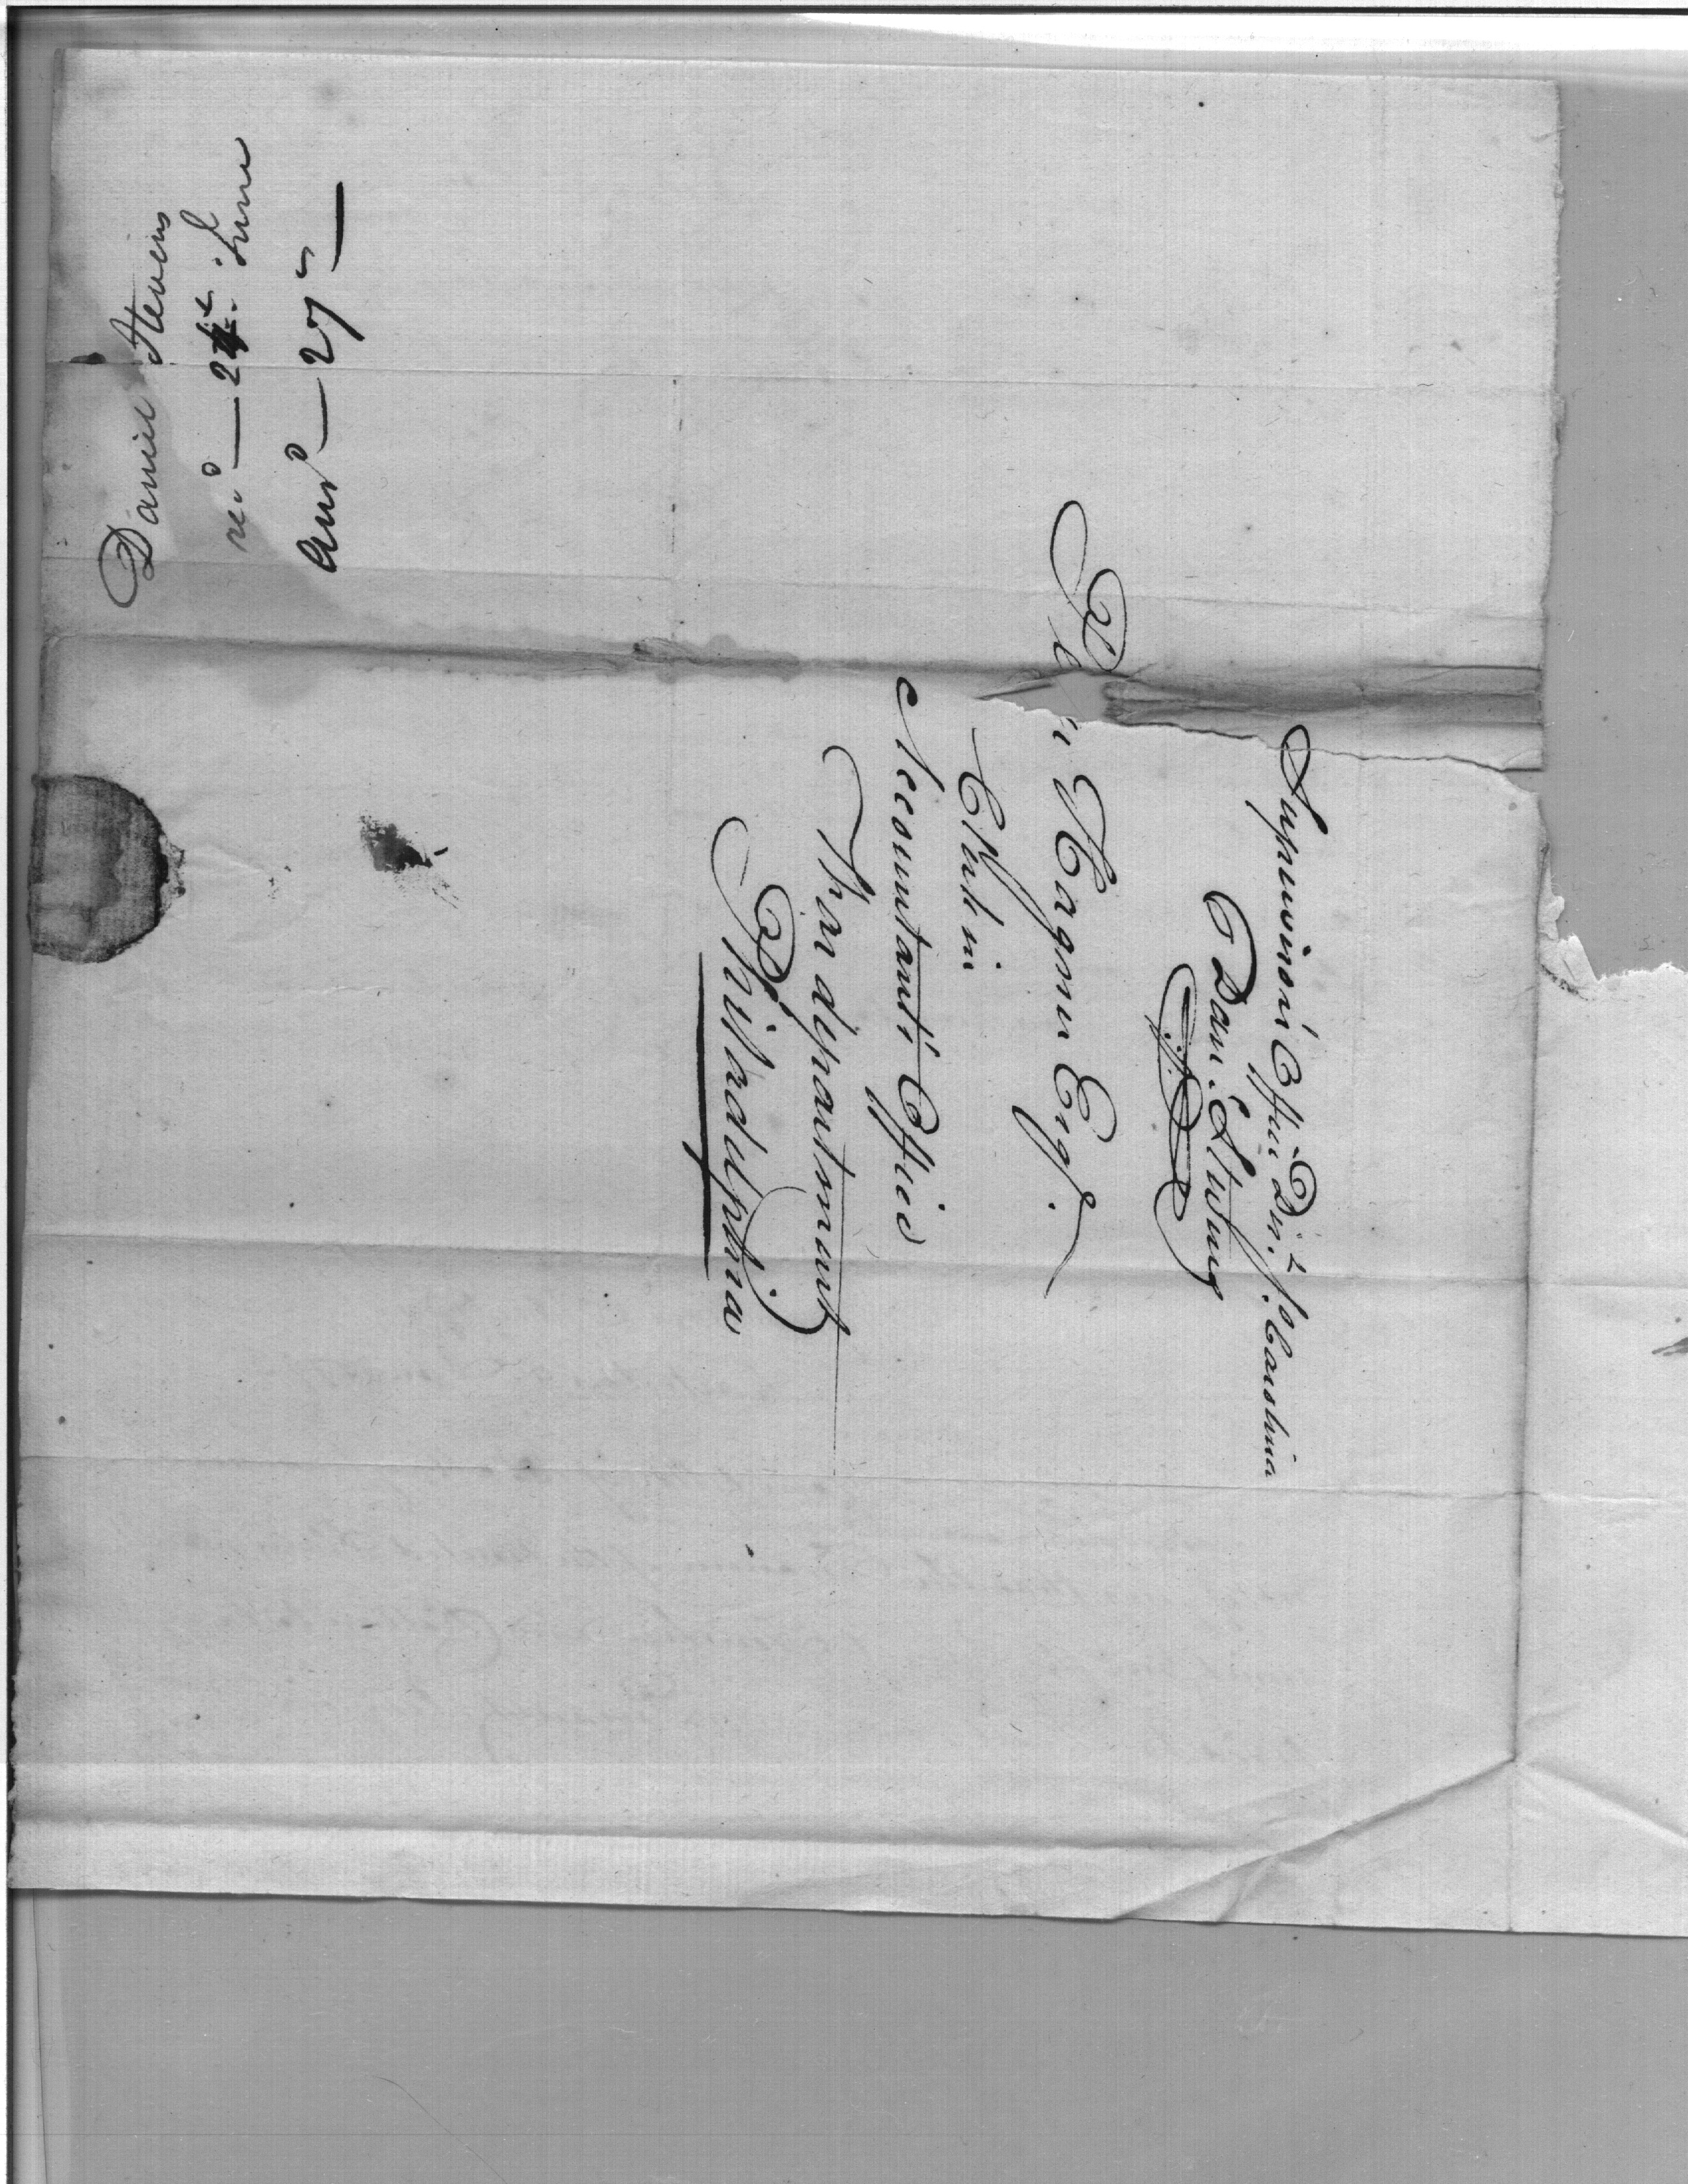 Supervisors Office Dist. So. Carolina
Danl. Stevens
Pe r Hagner Esqr.
Clerk in
Accountants Office
War department
Philadelphia
Daniel Stevens
recd — 24 June
Ansd — 27 —